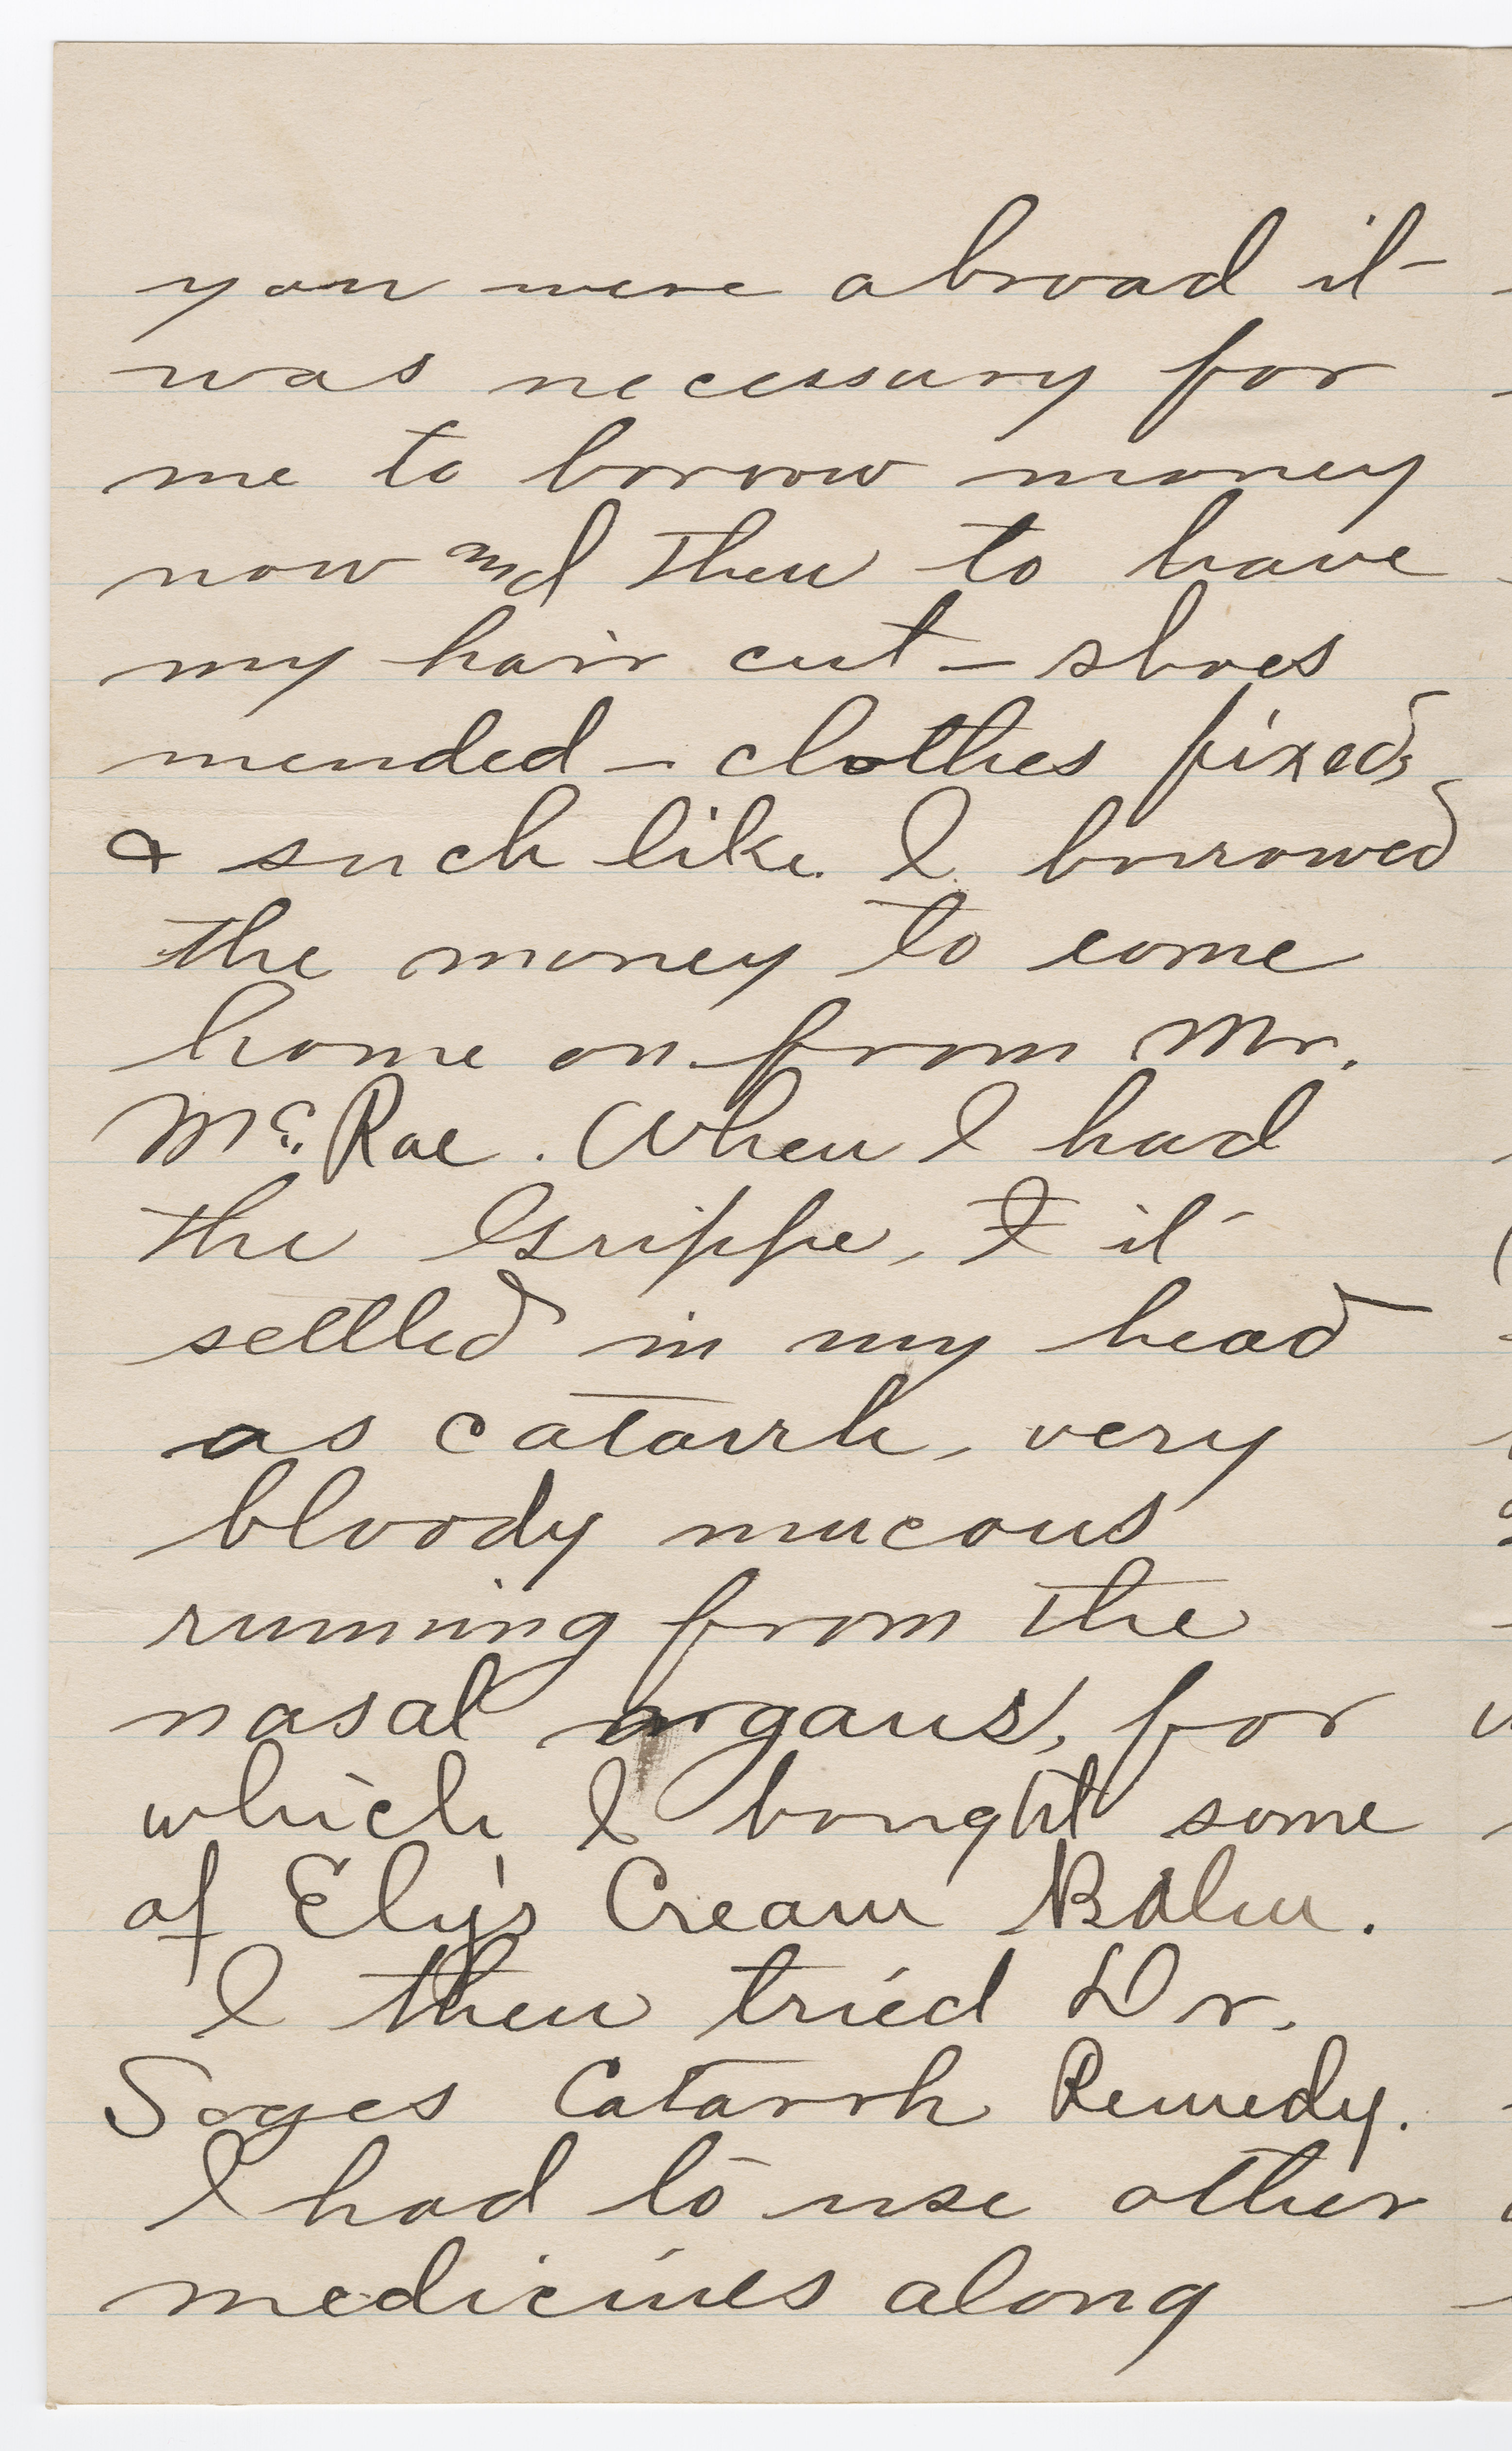 you were abroad it
was necessary for
me to borrow money
now and then to have
my hair cut – shoes
mended – clothes fixed,
& such like. I borrowed
the money to come
home on from Mr.
McRae. When I had
the Grippe, & it
settled in my head
as catarrh, very
bloody mucous
running from the
nasal organs, for
which I bought some
of Ely's Cream Balm.
I then tried Dr.
Sages Catarrh Remedy.
I had to use other
medicines along